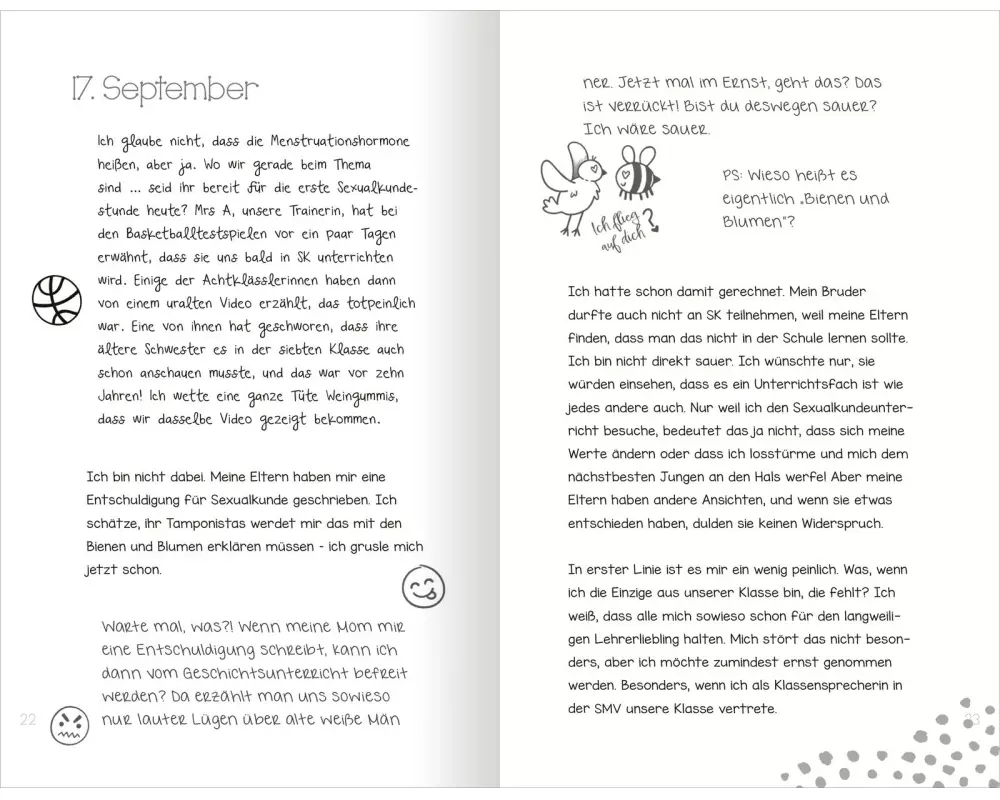 17. September
Ich glaube nicht, dass die Menstruationshormone
heißen, aber ja. Wo wir gerade beim Thema
sind ... seid ihr bereit für die erste Sexualkunde-
stunde heute? Mrs A, unsere Trainerin, hat bei
den Basketballtestspielen vor ein paar Tagen
erwähnt, dass sie uns bald in SK unterrichten
wird. Einige der Achtklässlerinnen haben dann
von einem uralten Video erzählt, das totpeinlich
war. Eine von ihnen hat geschworen, dass ihre
ältere Schwester es in der siebten Klasse auch
schon anschauen musste, und das war vor zehn
Jahren! Ich wette eine ganze Tüte Weingummis,
dass wir dasselbe Video gezeigt bekommen.
Ich bin nicht dabei. Meine Eltern haben mir eine
Entschuldigung für Sexualkunde geschrieben. Ich
schätze, ihr Tamponistas werdet mir das mit den
Bienen und Blumen erklären müssen - ich grusle mich
jetzt schon.
Warte mal, was?! Wenn meine Mom mir
eine Entschuldigung schreibt, kann ich
dann vom Geschichtsunterricht befreit
werden? Da erzählt man uns sowieso
nur lauter Lügen über alte weiße Män
22
ner. Jetzt mal im Ernst, geht das? Das
ist verrückt! Bist du deswegen sauer?
Ich wäre sauer.
Ich flieg
auf dich
?
PS: Wieso heißt es
eigentlich „Bienen und
Blumen"?
Ich hatte schon damit gerechnet. Mein Bruder
durfte auch nicht an SK teilnehmen, weil meine Eltern
finden, dass man das nicht in der Schule lernen sollte.
Ich bin nicht direkt sauer. Ich wünschte nur, sie
würden einsehen, dass es ein Unterrichtsfach ist wie
jedes andere auch. Nur weil ich den Sexualkundeunter-
richt besuche, bedeutet das ja nicht, dass sich meine
Werte ändern oder dass ich losstürme und mich dem
nächstbesten Jungen an den Hals werfe! Aber meine
Eltern haben andere Ansichten, und wenn sie etwas
entschieden haben, dulden sie keinen Widerspruch.
In erster Linie ist es mir ein wenig peinlich. Was, wenn
ich die Einzige aus unserer Klasse bin, die fehlt? Ich
weiß, dass alle mich sowieso schon für den langweili-
gen Lehrerliebling halten. Mich stört das nicht beson-
ders, aber ich möchte zumindest ernst genommen
werden. Besonders, wenn ich als Klassensprecherin in
der SMV unsere Klasse vertrete.
23